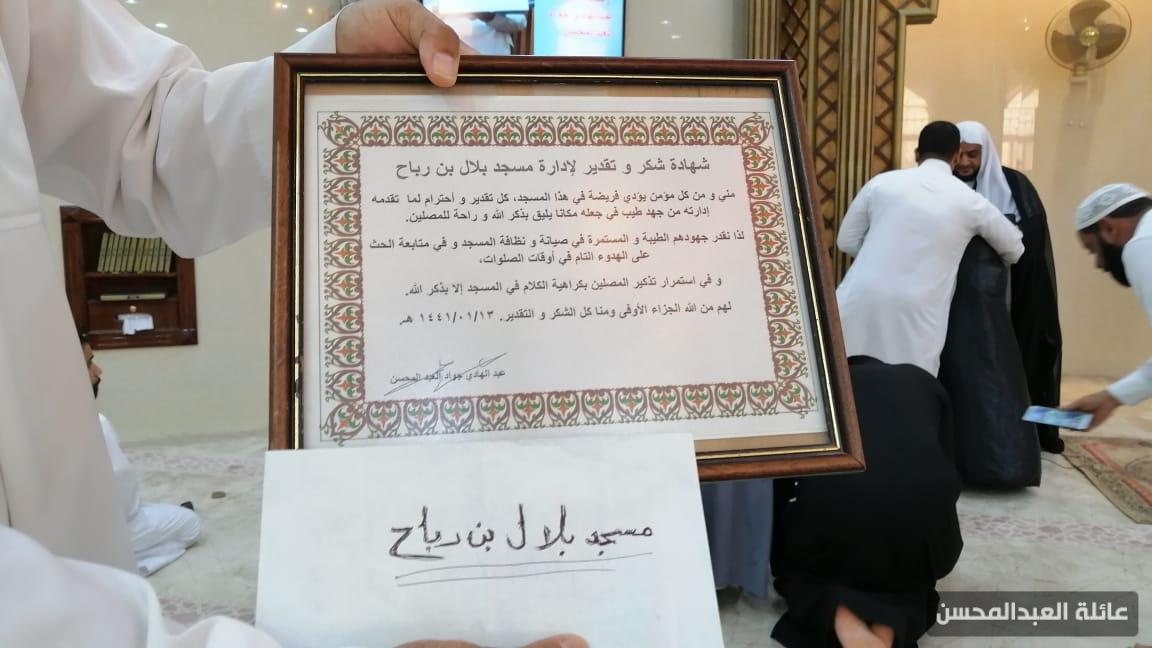 شهادة شكر و تقدير لإدارة مسجد بلال بن رباح
مني و من كل مؤمن يؤدي فريضة في هذا المسجد، كل تقدير و أحترام لما تقدمه
إدارته من جهد طيب في جعله مكانا يليق بذكر الله و راحة للمصلين.
لذا نقدر جهودهم الطيبة و المستمرة في صيانة و نظافة المسجد و في متابعة الحث
على الهدوء التام في أوقات الصلوات،
و في استمرار تذكير المصلين بكراهية الكلام في المسجد إلا بذكر الله.
لهم من الله الجزاء الأوفى ومنا كل الشكر و التقدير. ١٤٤١/٠١/١٣ هـ.
عبد الهادي جواد العبد المحسن
مسجد بلال بن رباح
عائلة العبدالمحسن